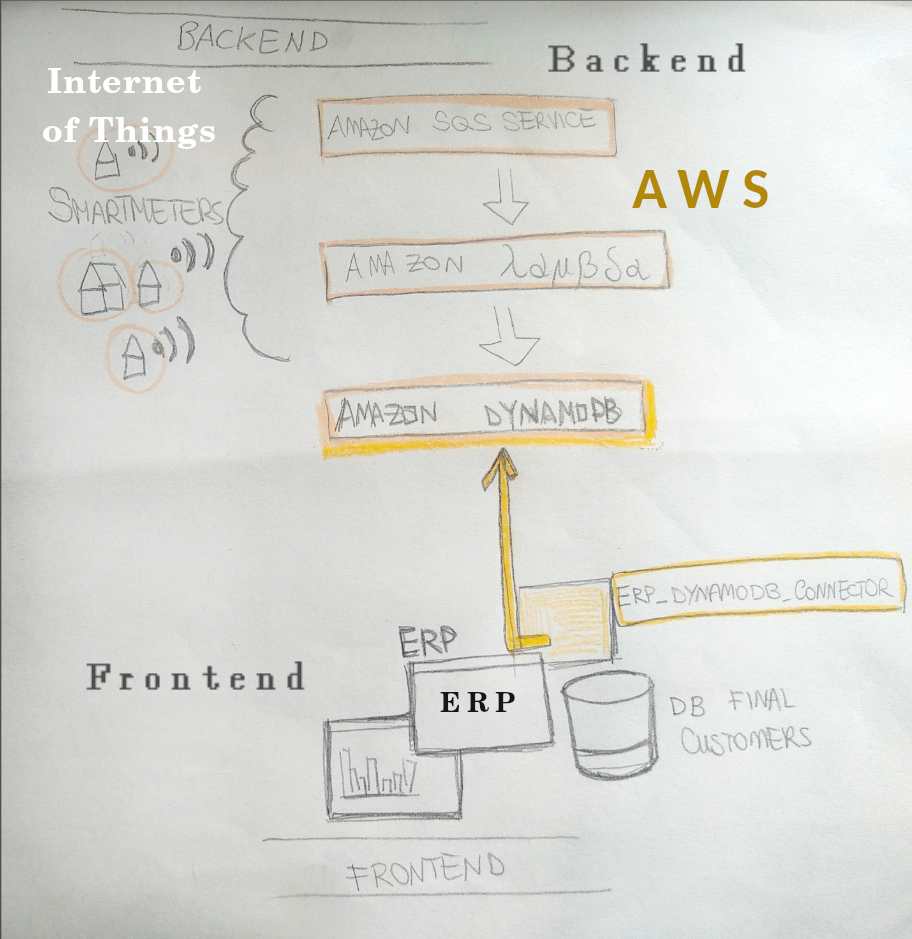 BACKEND
Backend
Internet
of Things
AMAZON SQS SERVICE
AWS
SMARTMETERS
AMAZON λαμβδα
AMAZON DYNAMODB
ERP_DYNAMODB_CONNECTOR
ERP
Frontend
ERP
DB FINAL
CUSTOMERS
FRONTEND